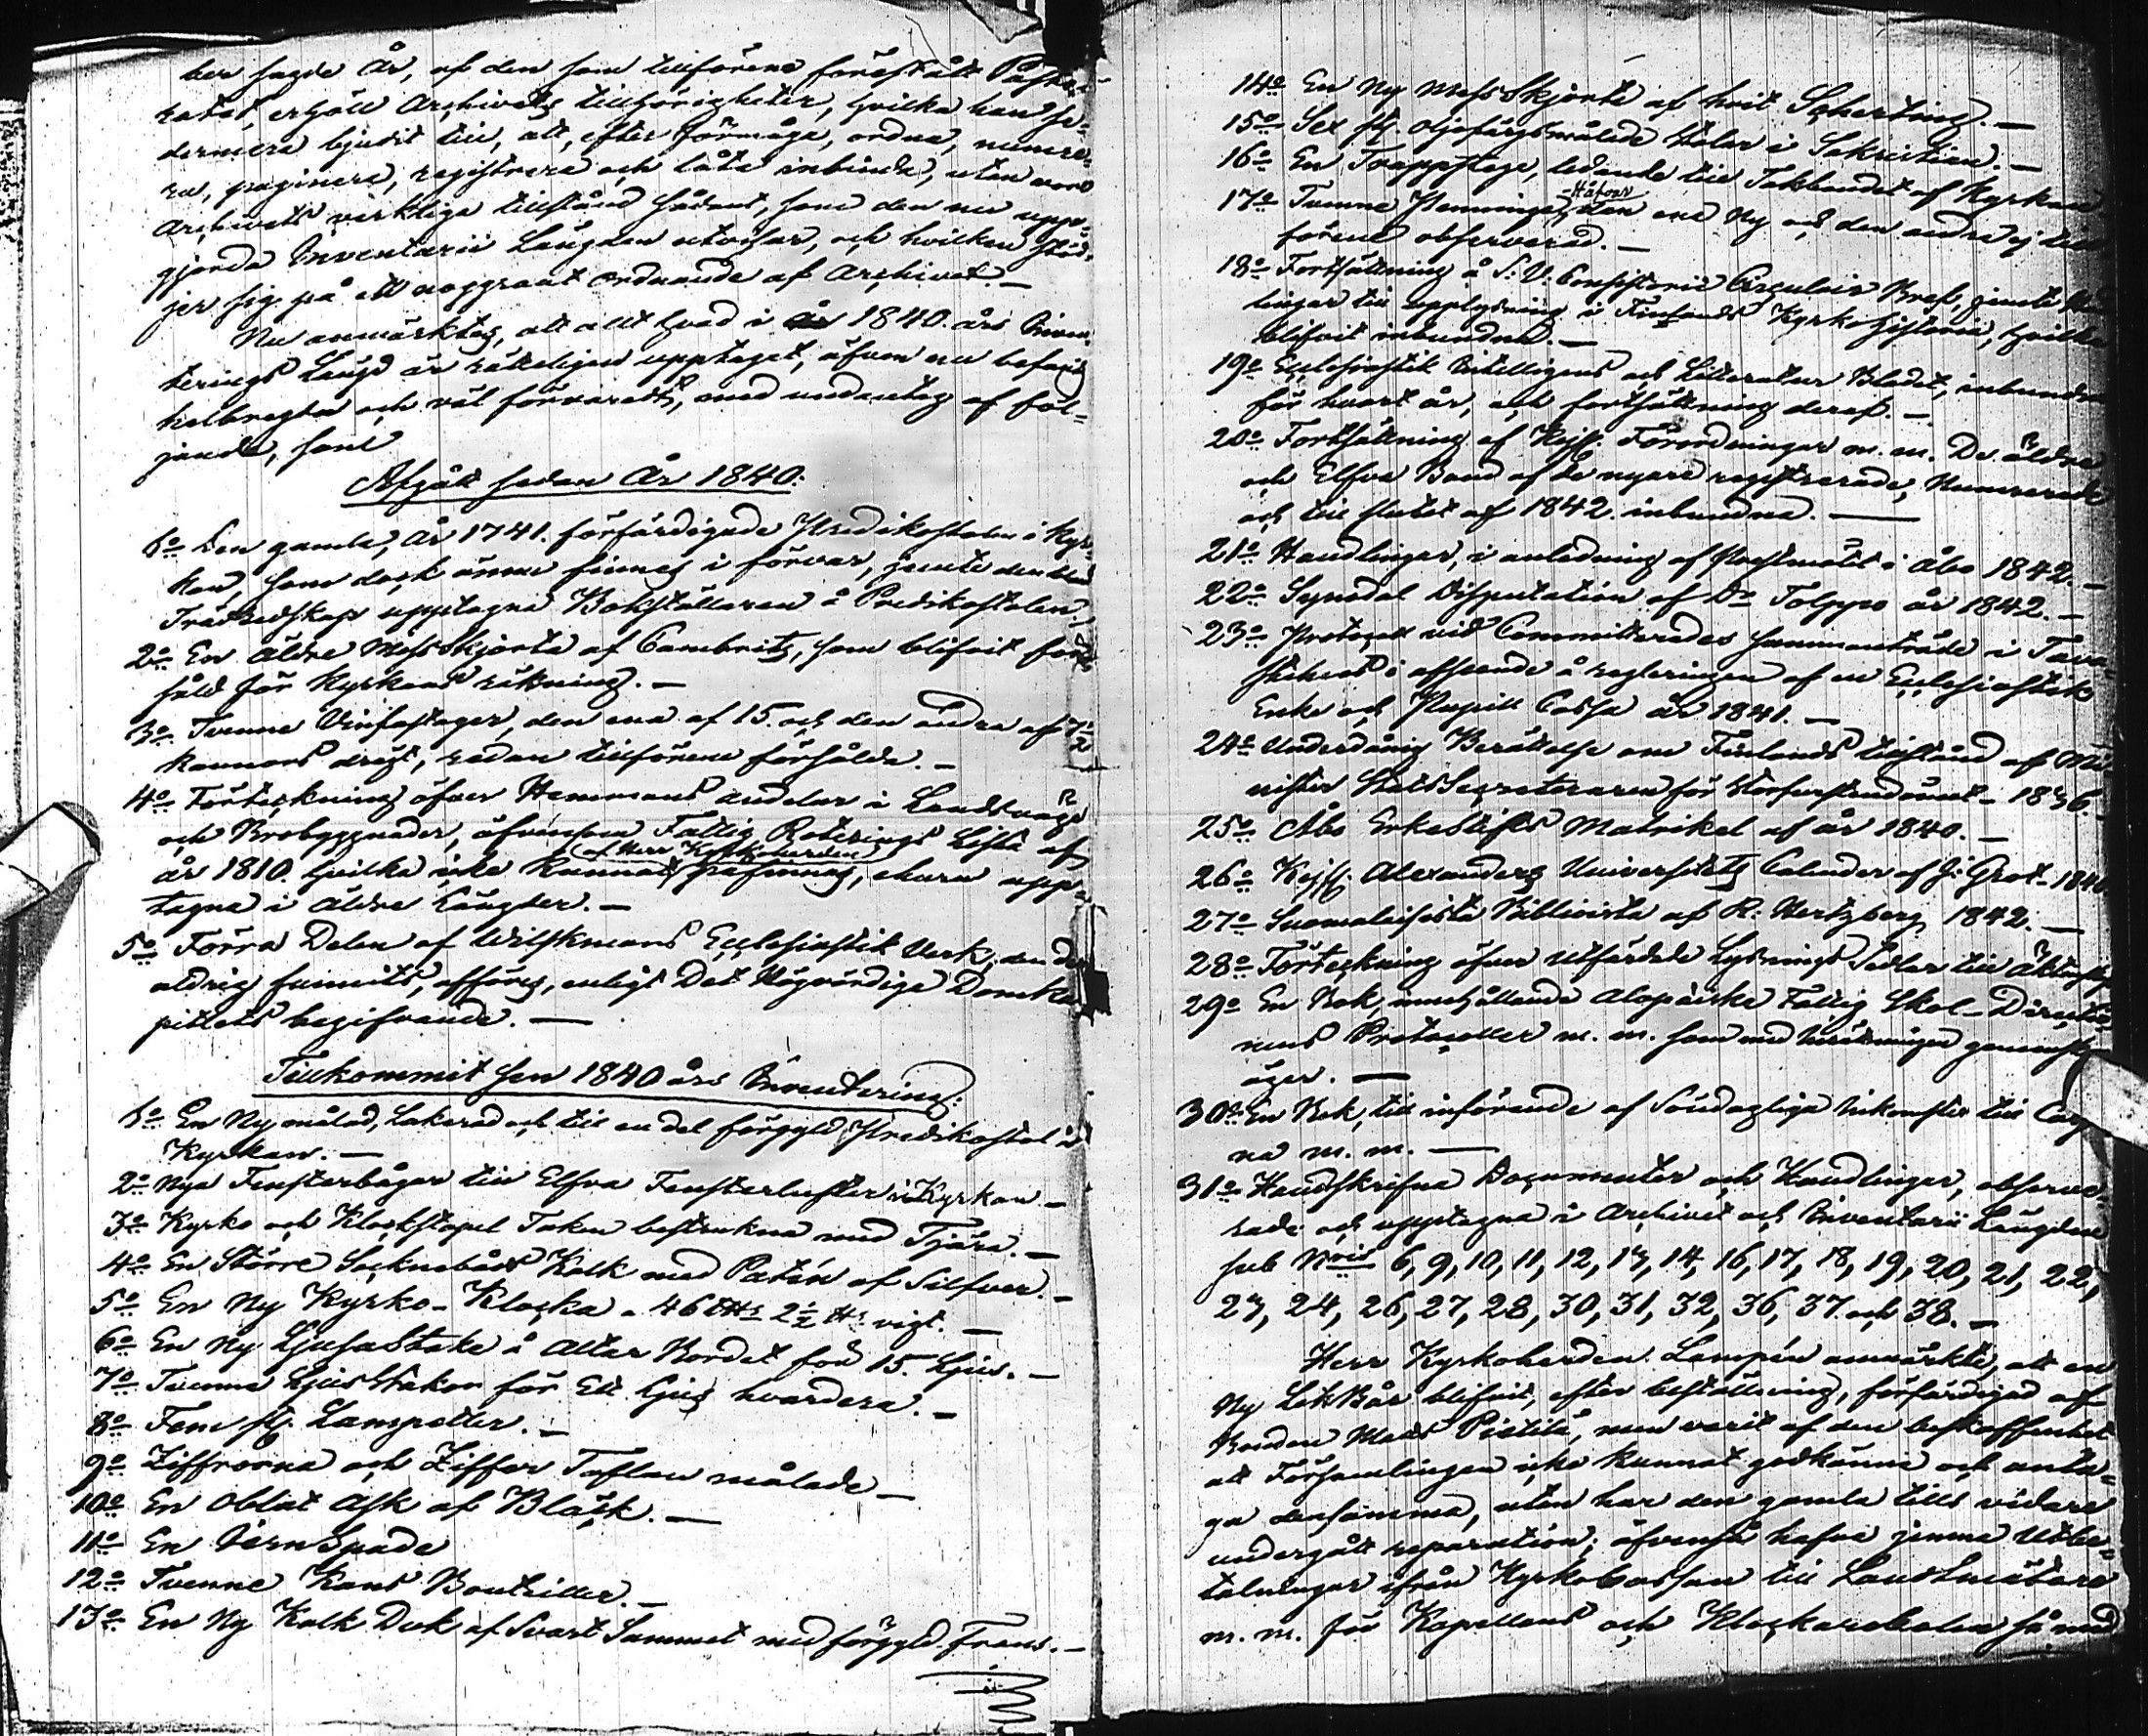 ber sagde År, af den som tillförene förestått Pasto-
ratet, erhöll Archivets tillhörigheter, hvilka han se-
dermera bjudit till, att, efter förmåga, ordna, numre-
ra, paginera, registrera och låta inbinda, utan vore
Archivets verkliga tillstånd sådant, som den nu upp-
gjorda Inventarii Längden utvisar, och hvilken stöd-
jer sig på ett noggrant ordnande af Archivet.-
Nu anmärktes, att allt hvad i 1840. års Inven-
terings Längd är rätteligen upptaget, äfven nu befanns
helbregda och väl förvaradt, med undantag af föl-
jande, som
Afgått sedan År 1840.
1o Den gamla, År 1741. förfärdigade Predikostolen i Kyr-
kan, som dock ännu finnes i förvar, jemte den
Trädredskap upptagna Bokställaren å Predikostolen.
2o En äldre Messskjorta af Cambrits, som blifvit för-
såld för Kyrkans räkning.-
3o Tvenne Vinfastager, den ena af 15. och den andra af 7½
kannors drägt, redan tillförene försålda.-
4o Förteckning öfver Hemmans andelar i Landsvägs
och Brobyggnader, äfvensom Fattig Roterings Lista af
af Herr Kyrkoherden
år 1810. hvilka icke kunnat påfinnas, ehuru upp-
tagna i äldre Längder.-
5o Förra Delen af Wilskmans Ecclesiastik Verk, den der
aldrig funnits, afföres, enligt Det Högvördiga Domka-
pitlets begifvande.-
Tillkommit sen 1840 års Inventering:
1o En Ny målad, Lakerad och till en del förgyld Predikostol i
Kyrkan.-
2o Nya Fensterbågar till Elfva Fensterlufter i Kyrkan-
3o Kyrko och Klockstapel Taken bestrukna med Tjära.-
4o En Större Socknebåds Kalk med Patén af Silfver.-
5o En Ny Kyrko-Klocka. 46 L℔ 2½ ℔ vigt.-
6o En Ny Ljusastake å Altar Bordet för 15. Ljus.-
7o Tvenne Ljusstakar för Ett Ljus hvardera.-
8o Fem st. Lampetter.-
9o Ziffrorna och Ziffer Taflan målade-
10o En Oblat Ask af Bläck.-
11o En Jern Spade
12o Tvenne Kans Bouteiller.-
13o En Ny Kalk Duk af Svart Sammet med förgyld Frans.-
14o En Ny Messskjorta af hvit Scherting.-
15o Sex st. oljefärgsmålade Stolar i Sakristian.-
16o En Trappstege, ledande till Takbandet af Kyrkan
-Håfvar
17o Tvenne Pennings, den ena Ny och den andra ej till-
förene observerad.-
18o Fortsättning å S: V: Consistorii Circulair Bref, jemte Hand-
lingar till upplysning i Finlands Kyrkohistoria, hvilka
blifvit inbundna.-
19o Ecclesiastik Intelligens och Litteratur Bladet, inbundna
för hvart år, och fortsättning deraf.-
20o Fortsättning af Kejs. Förordningar m. m. De äldre
och Elfva Band af de nyare registrerade, Numrerade
och till slutet af 1842. inbundna.-
21o Handlingar, i anledning af Prestmötet i Åbo 1842.-
22o Synodal Disputation af Dr Tolpo år 1842.-
23o Protocoll vid Committerades sammanträde i Tava-
stehus i afseende å regleringen af en Ecclesiastik
Enke och Pupill Cassa år 1841.-
24o Underdånig Berättelse om Finlands tillstånd af Mi-
nister Stats Secreteraren för Storfurstendömet- 1836.
25o Åbo Erkestifts Matrikel af år 1840.-
26o Kejs. Alexanders Universitets Calender af J: Grot- 1840
27o Suomalaisista Biblioista af R. Hertzberg 1842.-
28o Förteckning öfver utfärdade Lysnings Sedlar till Äktenskap
29o En Bok, innehållande Alopæiska Fattig Skol-Directio-
nens Protocoller m. m. som med
äger.-
30o En Bok, till införande af Söndagliga inkomster till Cass-
na m. m.-
31o Handskrifna Documenter och Handlingar, observe-
rade och upptagna i Archivet och Inventarii Längden
sub Nris 6, 9, 10, 11, 12, 13, 14, 16, 17, 18, 19, 20, 21, 22,
23, 24, 26, 27, 28, 30, 31, 32, 36, 37. och 38.-
Herr Kyrkoherden Lampén anmärkte, att en
Ny Likbår blifvit, efter beställning, förfärdigad af
Bonden Mats Pietilä, men varit af den beskaffenhet
att Församlingen icke kunnat godkänna och anta-
ga densamma, utan har den gamla tills vidare
undergått reparation; äfvenså hafva jemna Utbe-
talningar ifrån Kyrkocassan till Landtmätare
m. m. för Kapellans och Klockarebolen så med